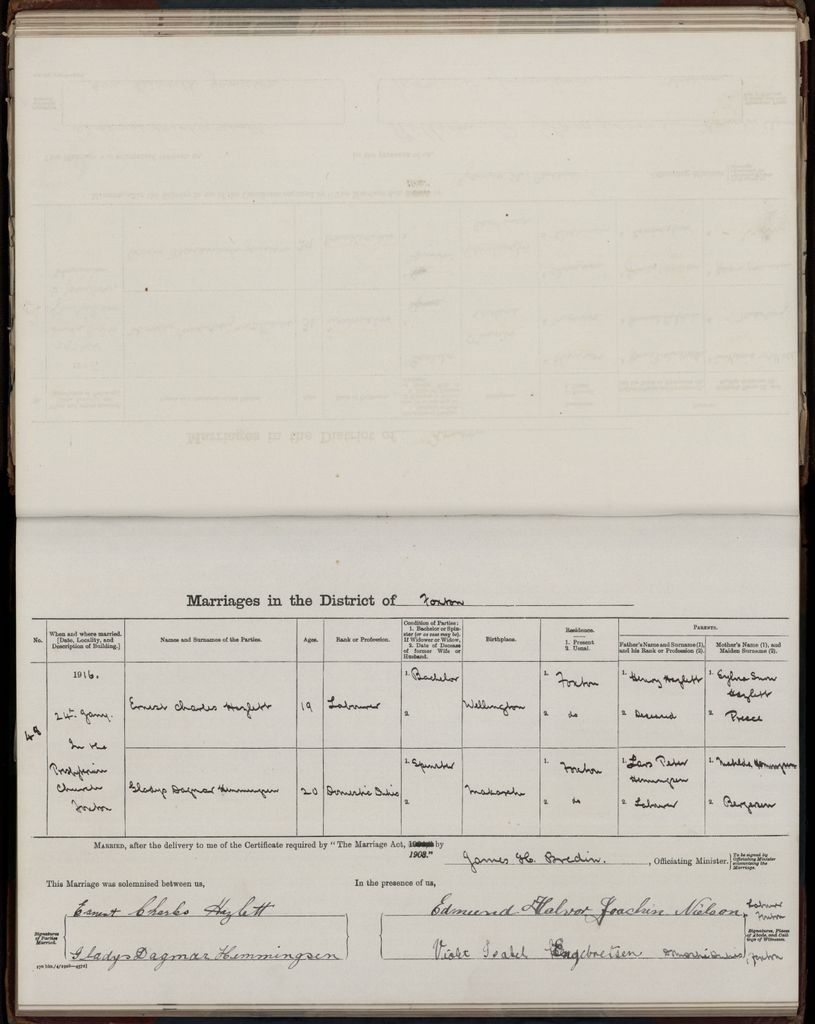 Marriages in the District of Foxton
No.
When and where married. [Date, Locality, and Description of Building.]
Names and Surnames of the Parties.
Ages.
Rank or Profession.
Condition of Parties: 1. Bachelor or Spinster (or as case may be). If Widower or Widow, 2. Date of Decease of former Wife or Husband.
Birthplace.
Residence. 1. Present 2. Usual.
PARENTS.
Father's Name and Surname (1), and his Rank or Profession (2).
Mother's Name (1), and Maiden Surname (2).
48
1916.
24th Jany.
In the
Presbyterian
Church
Foxton
Ernest Charles Hazlett
19
Labourer
1. Bachelor
2.
Wellington
1. Foxton
2. do
1. Henry Hazlett
2. Deceased
1.
Hazlett
2. Preece
Gladys Dagmar Hemmingsen
20
Domestic Duties
1. Spinster
2.
Makaroho
1. Foxton
2. do
1. Lars Peter
Hemmingsen
2. Labourer
1. Matilda Hemmingsen
2. Bergersen
MARRIED, after the delivery to me of the Certificate required by "The Marriage Act, 1908." by
James H. Bredin, Officiating Minister. [To be signed by Officiating Minister solemnizing the Marriage.
This Marriage was solemnised between us,
In the presence of us,
Signatures of Parties Married.
Ernest Charles Hazlett
Gladys Dagmar Hemmingsen
Edmund Halvor Joachin Nielson, Labourer
Foxton
Signatures, Places of Abode, and Callings of Witnesses.
Violet Isabel Engebretsen Domestic Duties, Foxton